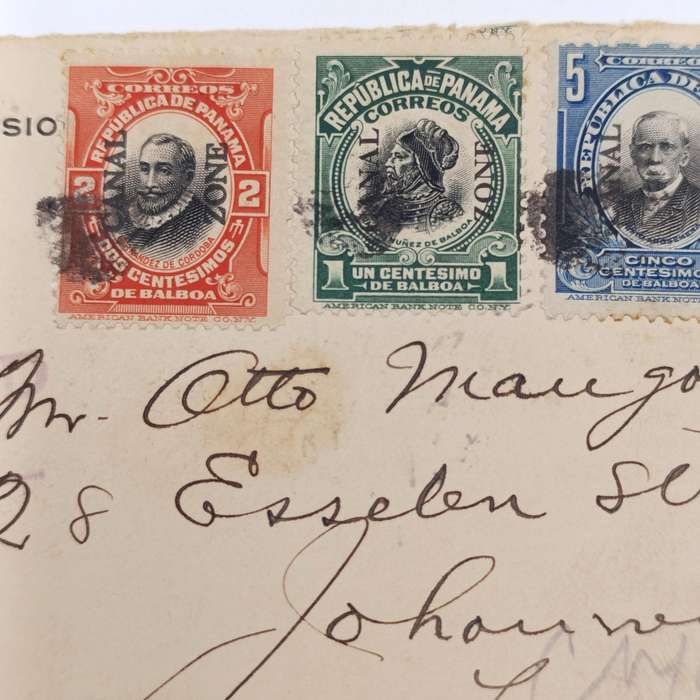 SIO
CORREOS
REPÚBLICA DE PANAMA
CANAL ZONE
2 2
FERNANDEZ DE CORDOBA
DOS CENTESIMOS
DE BALBOA
AMERICAN BANK NOTE CO.N.Y.
REPÚBLICA DE PANAMA
CORREOS
CANAL ZONE
NUÑEZ DE BALBOA
1 UN CENTESIMO 1
DE BALBOA
AMERICAN BANK NOTE CO.N.Y.
5 CORREO
REPÚBLICA DE
CANAL
5 CINCO
CENTESIMOS
DE BALBOA
AMERICAN BANK NOTE
Mr. Otto Mango
28 Esselen St
Johanne